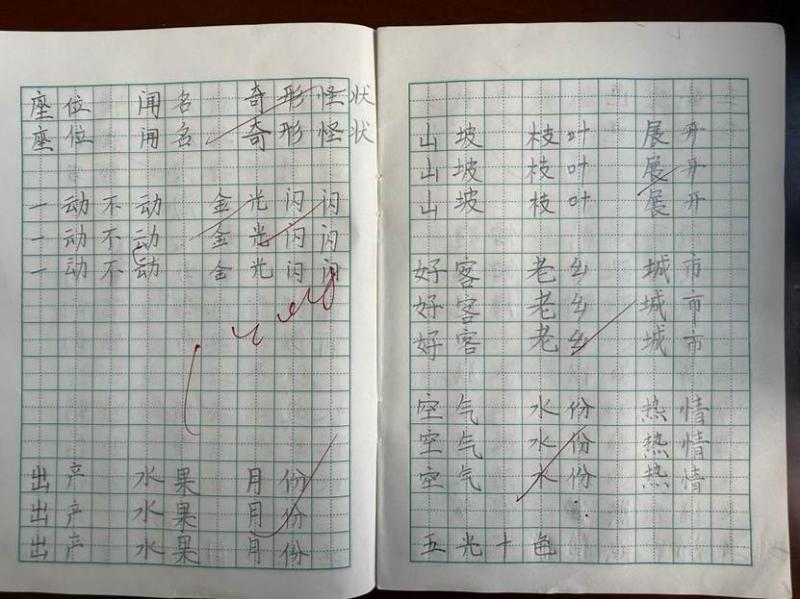 座位 闻名 奇形怪状
座位 闻名 奇形怪状
一动不动 金光闪闪
一动不动 金光闪闪
一动不动 金光闪闪
出产 水果 月份
出产 水果 月份
出产 水果 月份
山坡 枝叶 展开
山坡 枝叶 展开
山坡 枝叶 展开
好客 老乡 城市
好客 老乡 城市
好客 老乡 城市
空气 水份 热情
空气 水份 热情
空气 水份 热情
五光十色